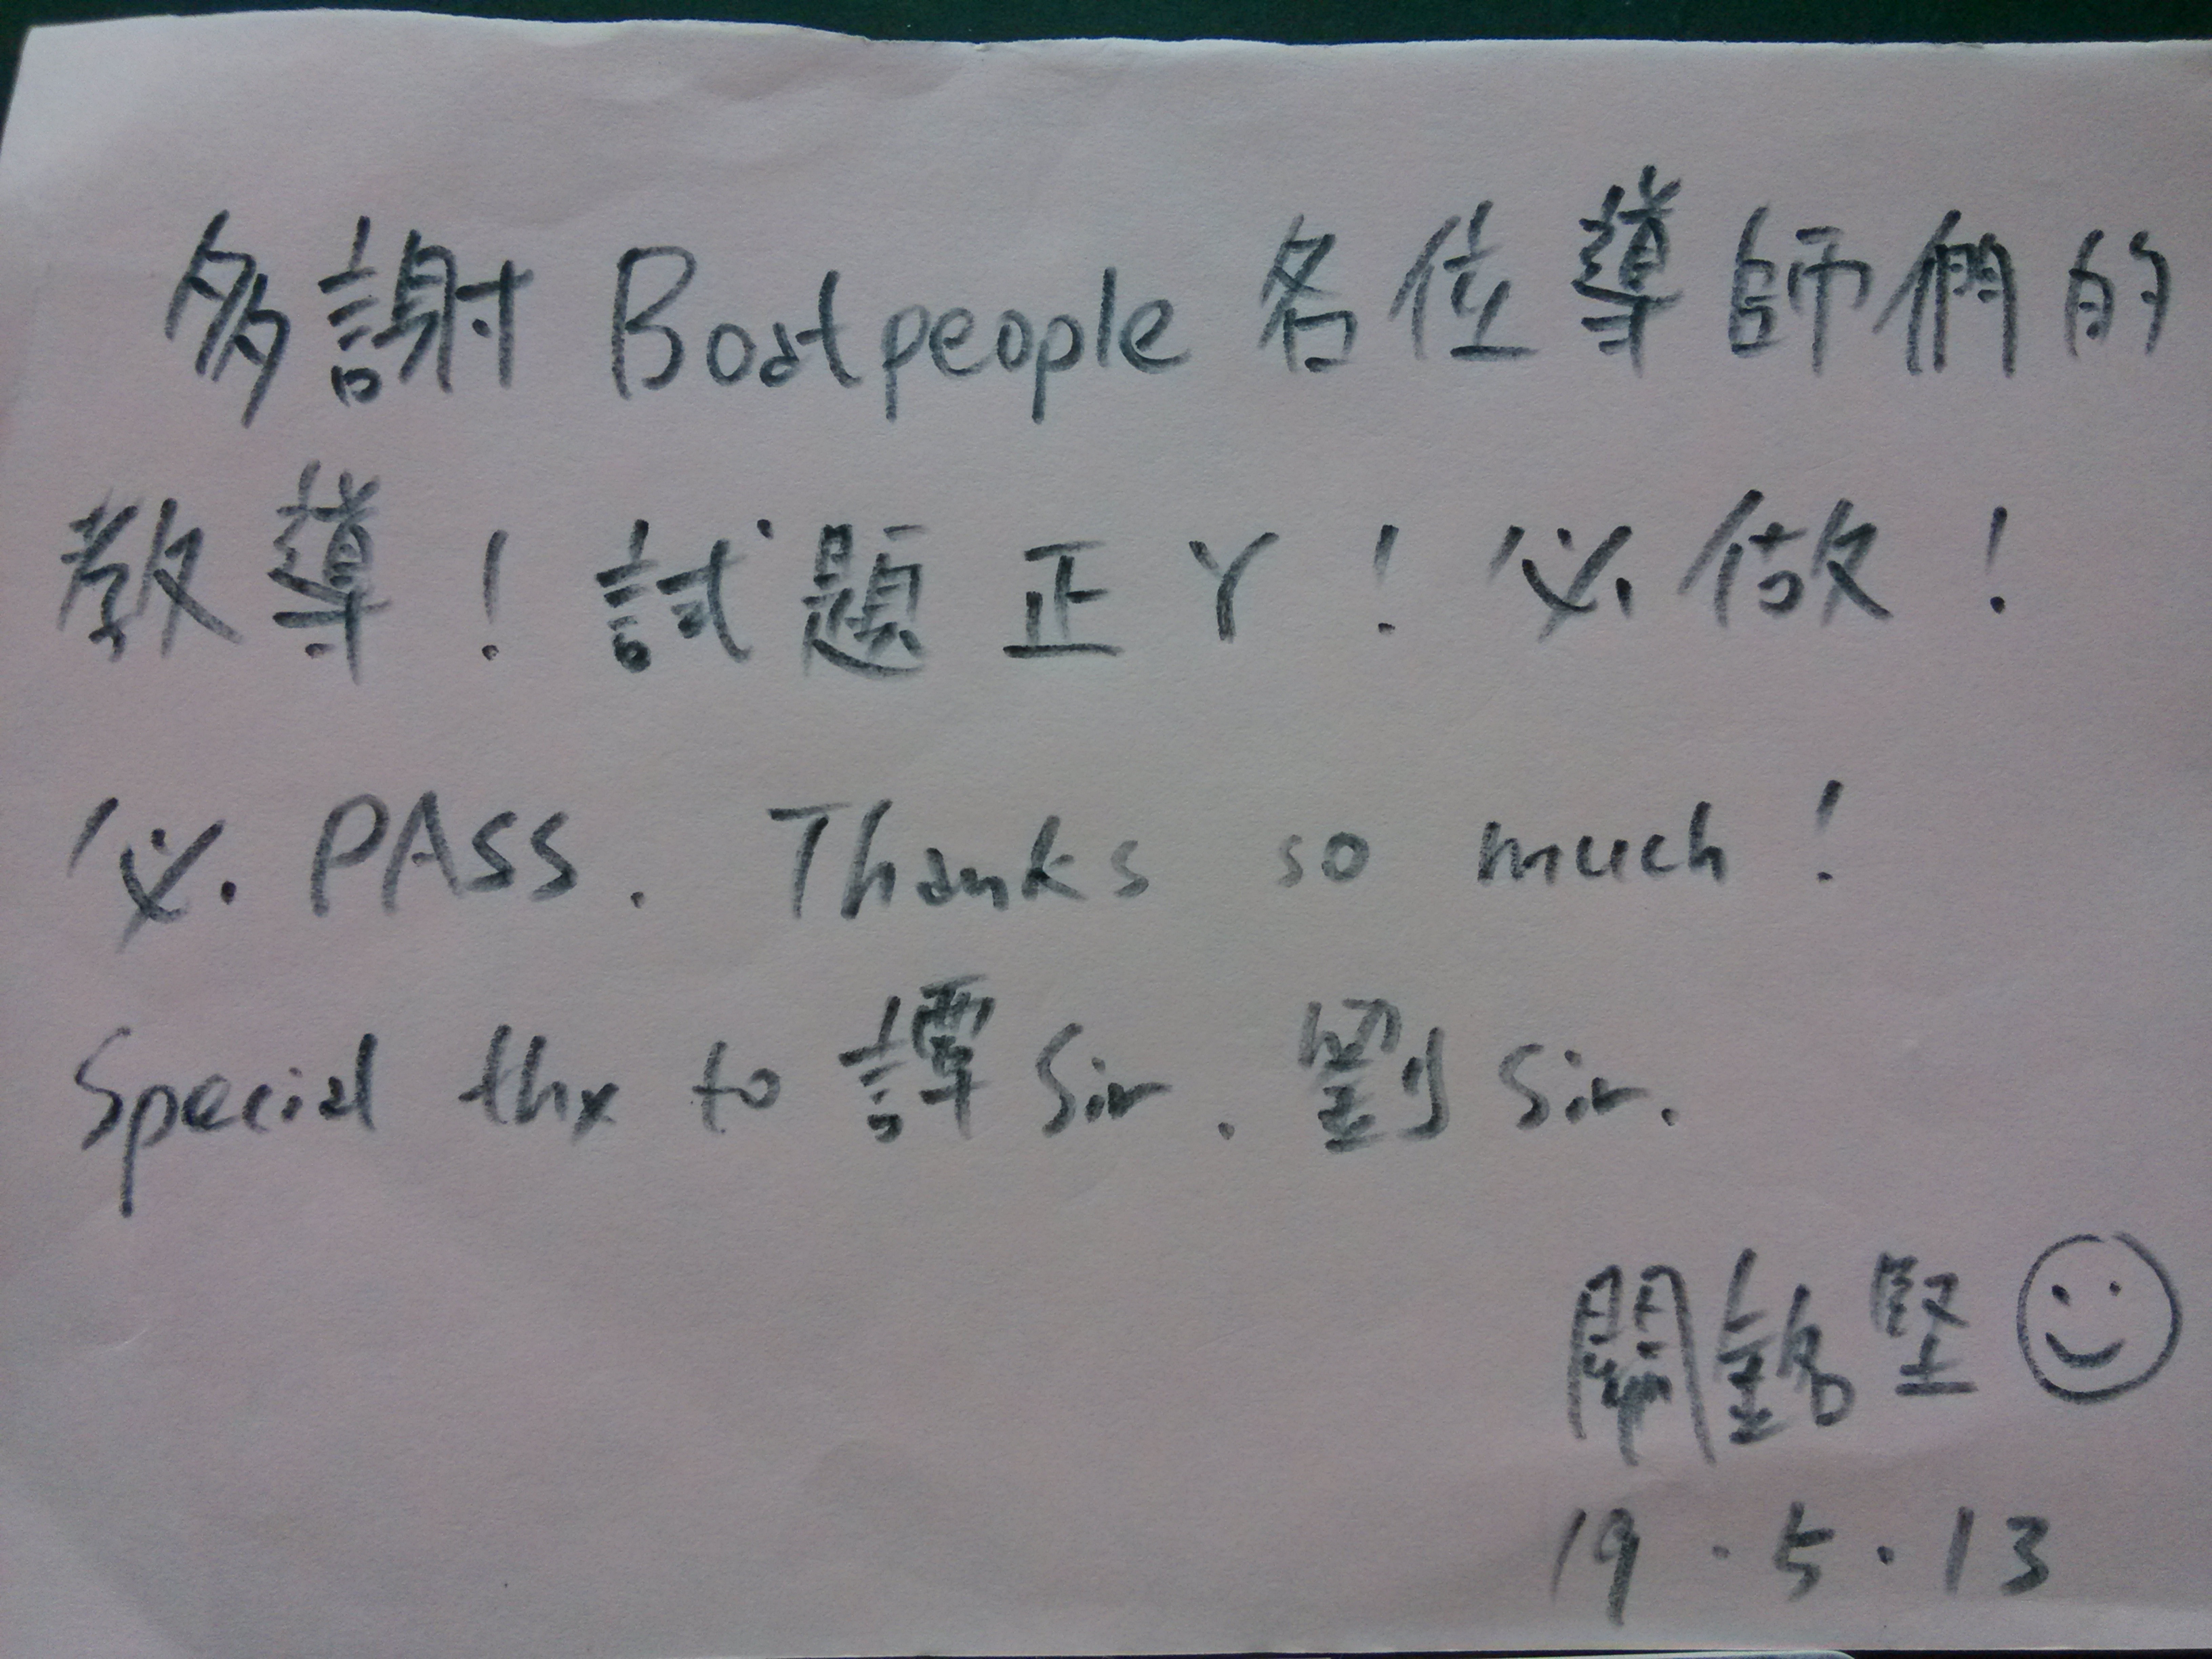 多謝 Boatpeople 各位導師們的
教導！試題正丫！必做！
必 PASS. Thanks so much!
Special thx to 譚 Sir. 劉 Sir.
關銘堅
19.5.13